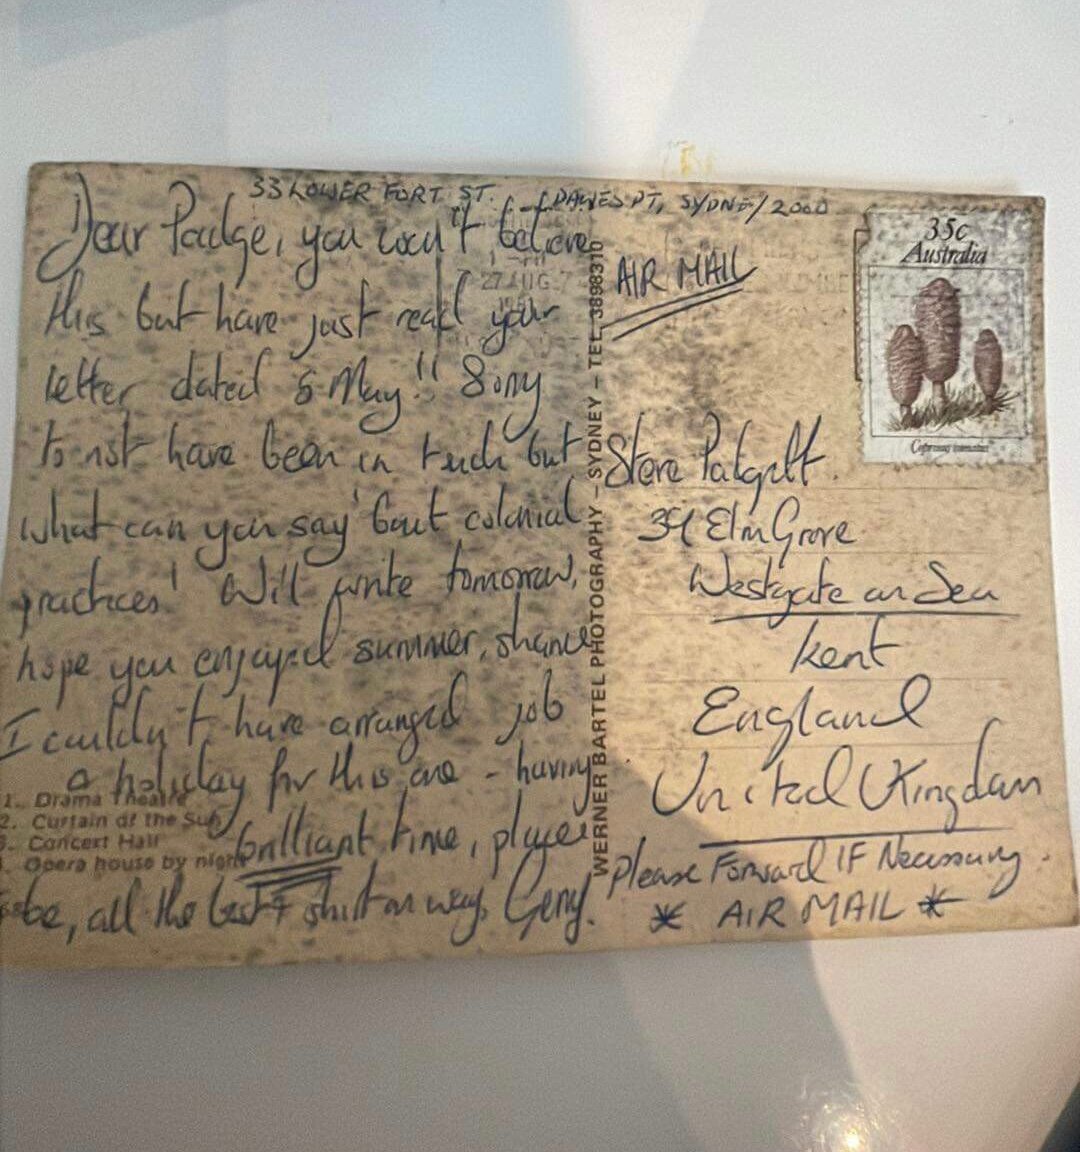 33 LOWER FORT ST. DAWES PT, SYDNEY 2000
Dear Padge, you won't believe
this but have just read your
letter dated 5 May!! Sorry
to not have been in touch but
what can you say 'bout colonial
practices! Will write tomorrow,
hope you enjoyed summer, shame
I couldn't have arranged job
a holiday for this one - having
brilliant time, place
be, all the best shirt on way. Gerry.
1. Drama Theatre
2. Curtain of the Sun
3. Concert Hall
Opera house by night
27 AUG
WERNER BARTEL PHOTOGRAPHY – SYDNEY – TEL. 3898310
AIR MAIL
35c
Australia
Coprinus comatus
Steve
39 Elm Grove
Westgate on Sea
Kent
England
United Kingdom
Please Forward IF Necessary.
* AIR MAIL *